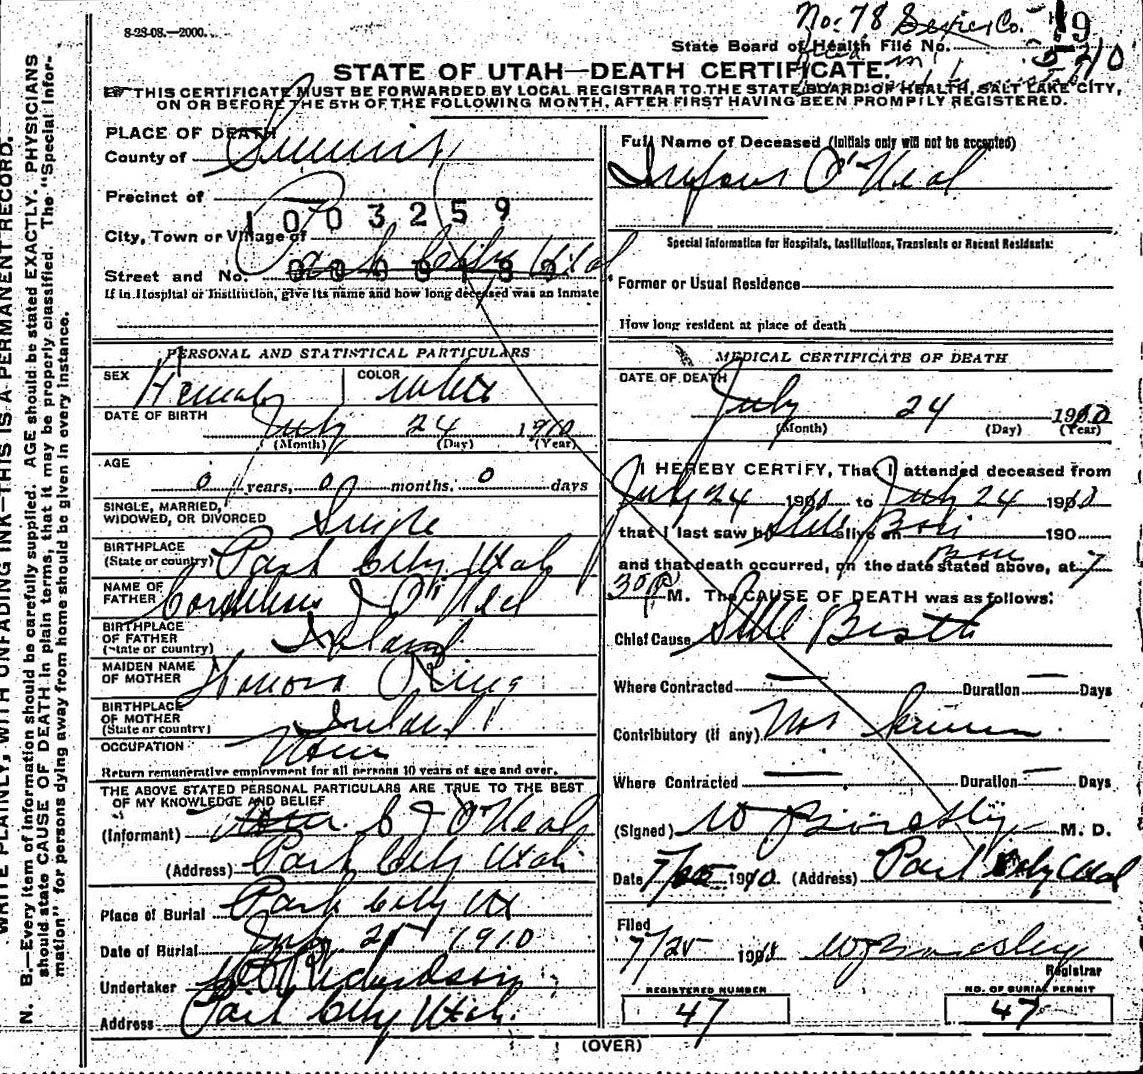 8-28-08.—2000.
No. 78 Sevier Co.
19
State Board of Health File No.
STATE OF UTAH—DEATH CERTIFICATE.
THIS CERTIFICATE MUST BE FORWARDED BY LOCAL REGISTRAR TO THE STATE BOARD OF HEALTH, SALT LAKE CITY,
ON OR BEFORE THE 5TH OF THE FOLLOWING MONTH, AFTER FIRST HAVING BEEN PROMPTLY REGISTERED.
WRITE PLAINLY, WITH UNFADING INK—THIS IS A PERMANENT RECORD.
N. B.—Every item of information should be carefully supplied. AGE should be stated EXACTLY. PHYSICIANS
should state CAUSE OF DEATH in plain terms, that it may be properly classified. The "Special Infor-
mation" for persons dying away from home should be given in every instance.
PLACE OF DEATH
County of Summit
Precinct of
1003259
City, Town or Village of Park City Utah
Street and No.
If in Hospital or Institution, give its name and how long deceased was an inmate
PERSONAL AND STATISTICAL PARTICULARS
SEX Female COLOR white
DATE OF BIRTH
July 24 1910
(Month) (Day) (Year)
AGE
0 years, 0 months, 0 days
SINGLE, MARRIED,
WIDOWED, OR DIVORCED Single
BIRTHPLACE
(State or country) Park City Utah
NAME OF
FATHER Cornelius J O'Neal
BIRTHPLACE
OF FATHER
(State or country) Ireland
MAIDEN NAME
OF MOTHER Honora Ring
BIRTHPLACE
OF MOTHER
(State or country) Ireland
OCCUPATION None
Return remunerative employment for all persons 10 years of age and over.
THE ABOVE STATED PERSONAL PARTICULARS ARE TRUE TO THE BEST
OF MY KNOWLEDGE AND BELIEF
(Informant) C J O'Neal
(Address) Park City Utah
Place of Burial Park City Ut
Date of Burial July 25 1910
Undertaker Richardson
Address Park City Utah.
Full Name of Deceased (Initials only will not be accepted)
O'Neal
Special Information for Hospitals, Institutions, Transients or Recent Residents:
Former or Usual Residence
How long resident at place of death
MEDICAL CERTIFICATE OF DEATH
DATE OF DEATH
July 24 1910
(Month) (Day) (Year)
I HEREBY CERTIFY, That I attended deceased from
July 24 1910 to July 24 1910
that I last saw h Still Born alive on 190
and that death occurred, on the date stated above, at 7
30 P M. The CAUSE OF DEATH was as follows:
Chief Cause Still Birth
Where Contracted — Duration — Days
Contributory (if any) Not known
Where Contracted — Duration — Days
(Signed) W J Bardsley M. D.
Date 7/25 1910 (Address) Park City Utah
Filed
7/25 1910 W J Bardsley
Registrar
REGISTERED NUMBER
47
NO. OF BURIAL PERMIT
47
(OVER)